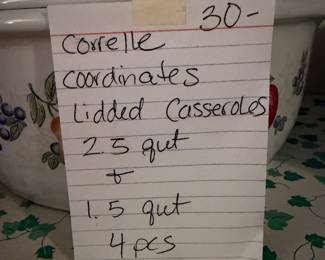 30-
Correlle
Coordinates
Lidded Casseroles
2.5 qut
&
1.5 qut
4 pcs